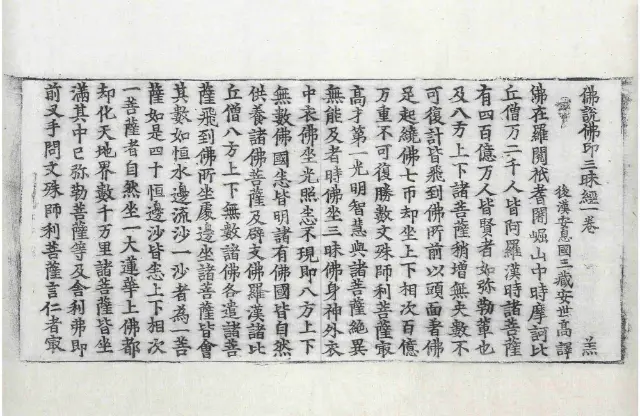 佛說佛印三昧經一卷 羔
後漢安息國三藏安世高譯
佛在羅閱祇耆闍崛山中時摩訶比
丘僧万二千人皆阿羅漢時諸菩薩
有四百億万人皆賢者如弥勒輩也
及八方上下諸菩薩稍增無央數不
可復計皆飛到佛所前以頭面著佛
足起繞佛七帀却坐上下相次百億
万重不可復勝數文殊師利菩薩㝡
高才第一光明智慧與諸菩薩絕異
無能及者時佛坐三昧佛身神外衣
中衣佛坐光照悉不現即八方上下
無數佛國悉皆明諸有佛國皆自然
供養諸佛菩薩及辟支佛羅漢諸比
丘僧八方上下無數諸佛各遣諸菩
薩飛到佛所坐處邊坐諸菩薩皆會
其數如恒水邊流沙一沙者為一菩
薩如是四十恒邊沙皆悉上下相次
一菩薩者自然坐一大蓮華上佛都
却化天地界數千万里諸菩薩皆坐
滿其中已弥勒菩薩等及舍利弗即
前叉手問文殊師利菩薩言仁者㝡